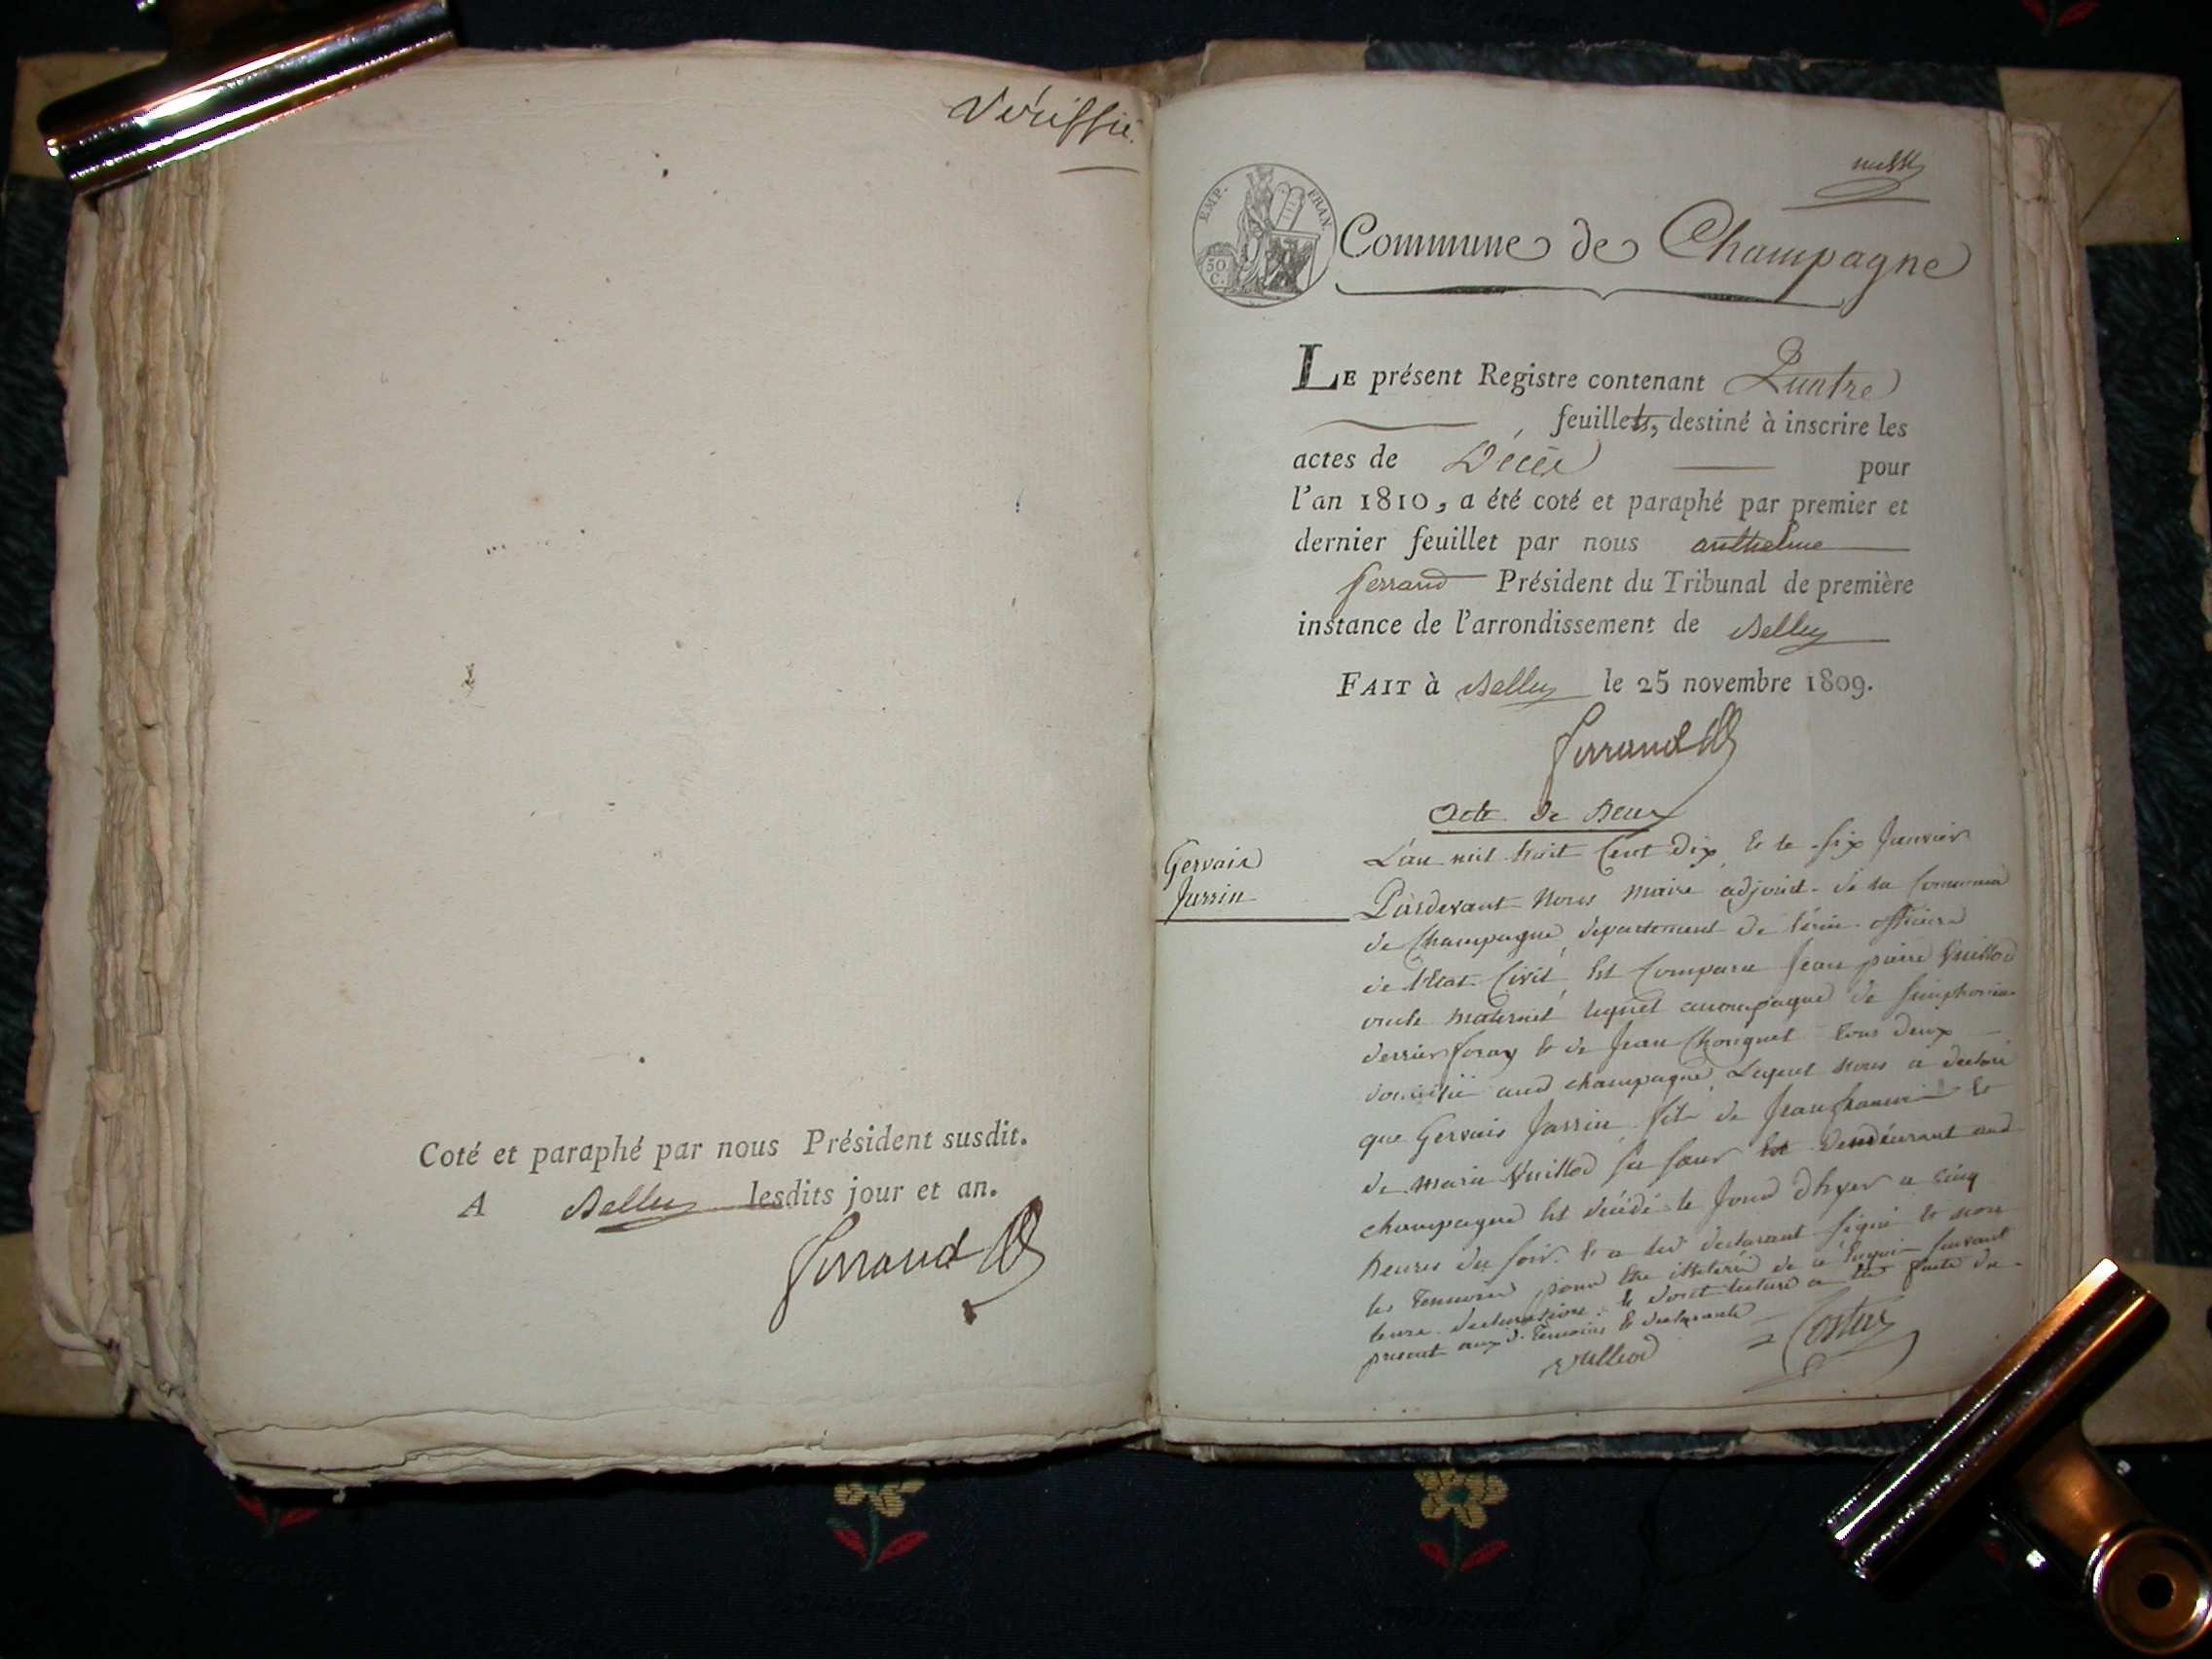 Vériffié
Coté et paraphé par nous Président susdit.
A Belley lesdits jour et an.
Ferrand
EMP. FRAN.
50 C.
Commune de Champagne
LE présent Registre contenant Quatre
feuillets, destiné à inscrire les
actes de Décès pour
l'an 1810, a été coté et paraphé par premier et
dernier feuillet par nous anthelme
ferrand Président du Tribunal de première
instance de l'arrondissement de Belley
FAIT à Belley le 25 novembre 1809.
Ferrand
Acte de
Gervais
Jarrin
L'an mil huit Cent dix, & le six Janvier
Pardevant Nous maire adjoint de la Commune
de Champagne, departement de l'ain officier
de l'Etat Civil, Est Comparu Jean pierre Vuillod
oncle maternel lequel accompagné de
& de Jean Chonguet tous deux
aud champagne, Lequel nous a declaré
que Gervais Jarrin fils de Jean &
de marie Vuillod sa sœur demeurant aud
champagne Est décédé le Jourd dhyer a cinq
heures du soir & a led declarant signé & non
les Temoins pour être de ce Enquis suivant
leure declaration, & dont lecture a été faite du
present aux d. Temoins & declarants
vulliod
Costus